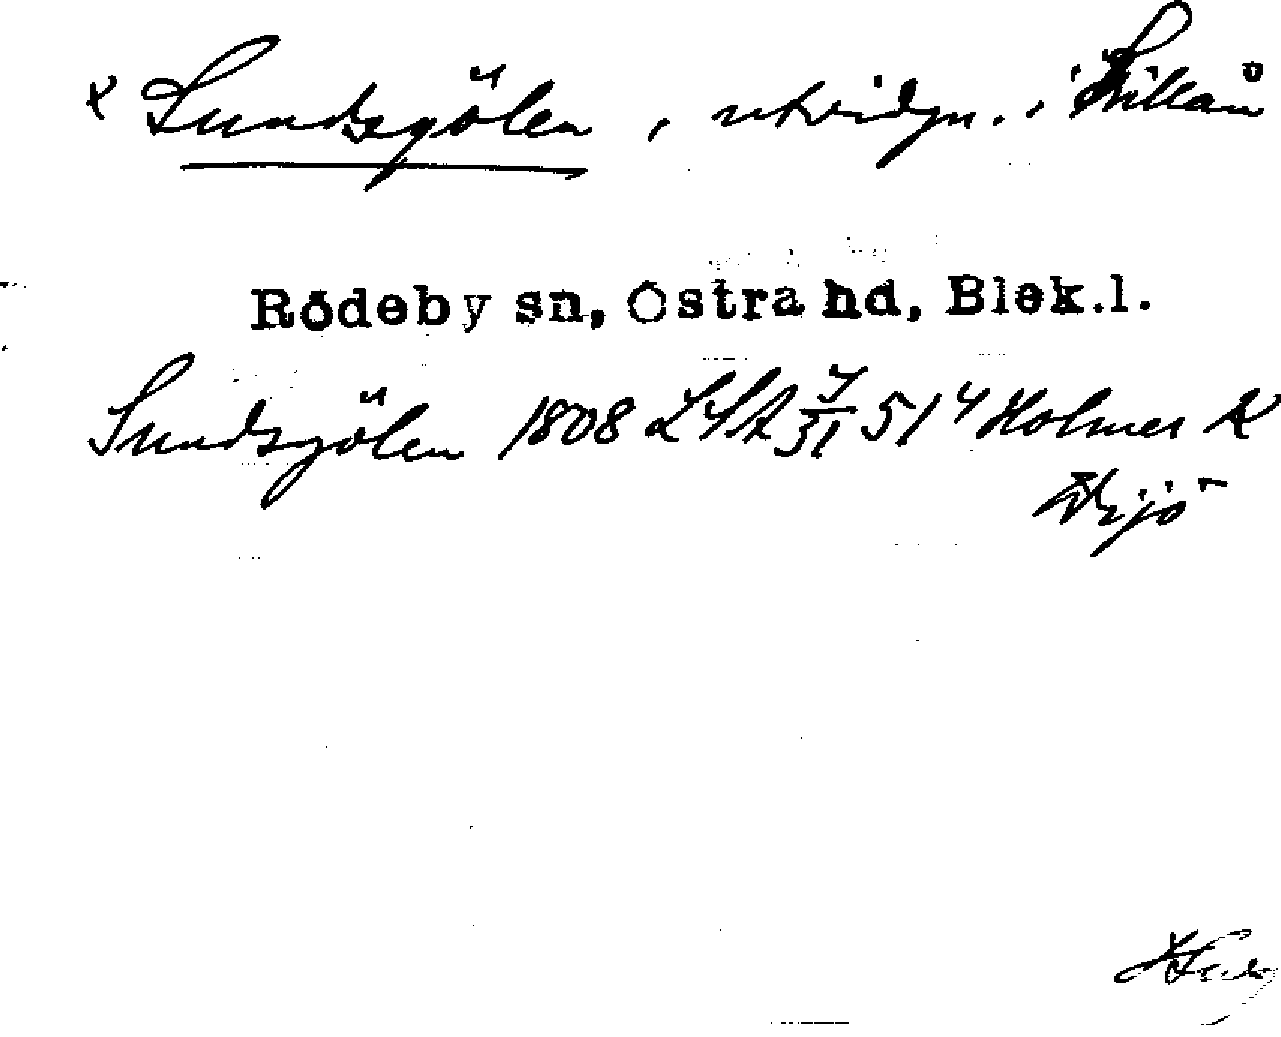 x Sundsgölen, utvidgn. i Lillån
Rödeby sn, Östra hd, Blek.l.
Sundsgölen 1808 LSA 7/31 514 Holmer K